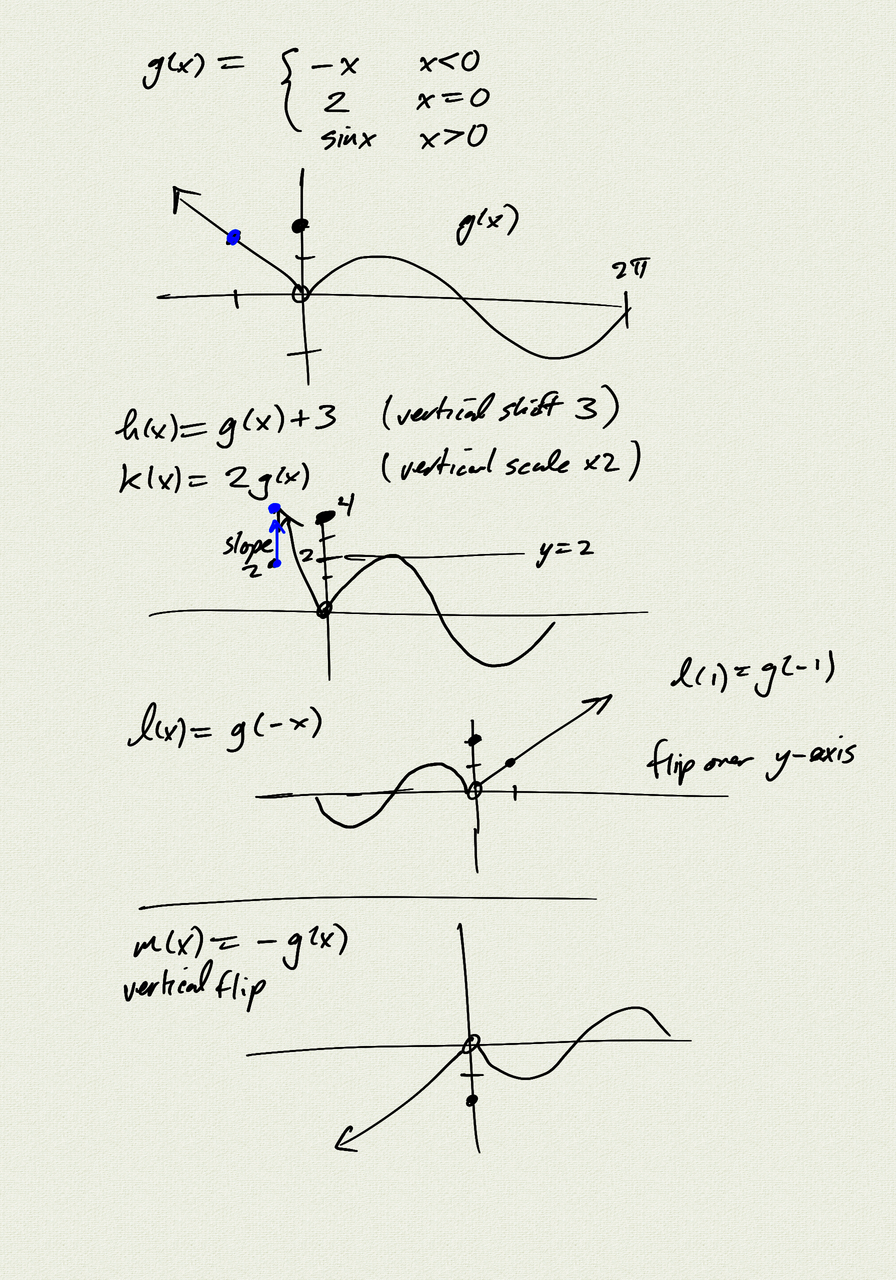 g(x) = { -x x<0
2 x=0
sinx x>0
g(x)
2π
h(x)= g(x)+3 (vertical shift 3)
k(x)= 2g(x) (vertical scale x2)
4
slope
2
2
y=2
l(1)=g(-1)
l(x)= g(-x)
flip over y-axis
m(x)= -g(x)
vertical flip